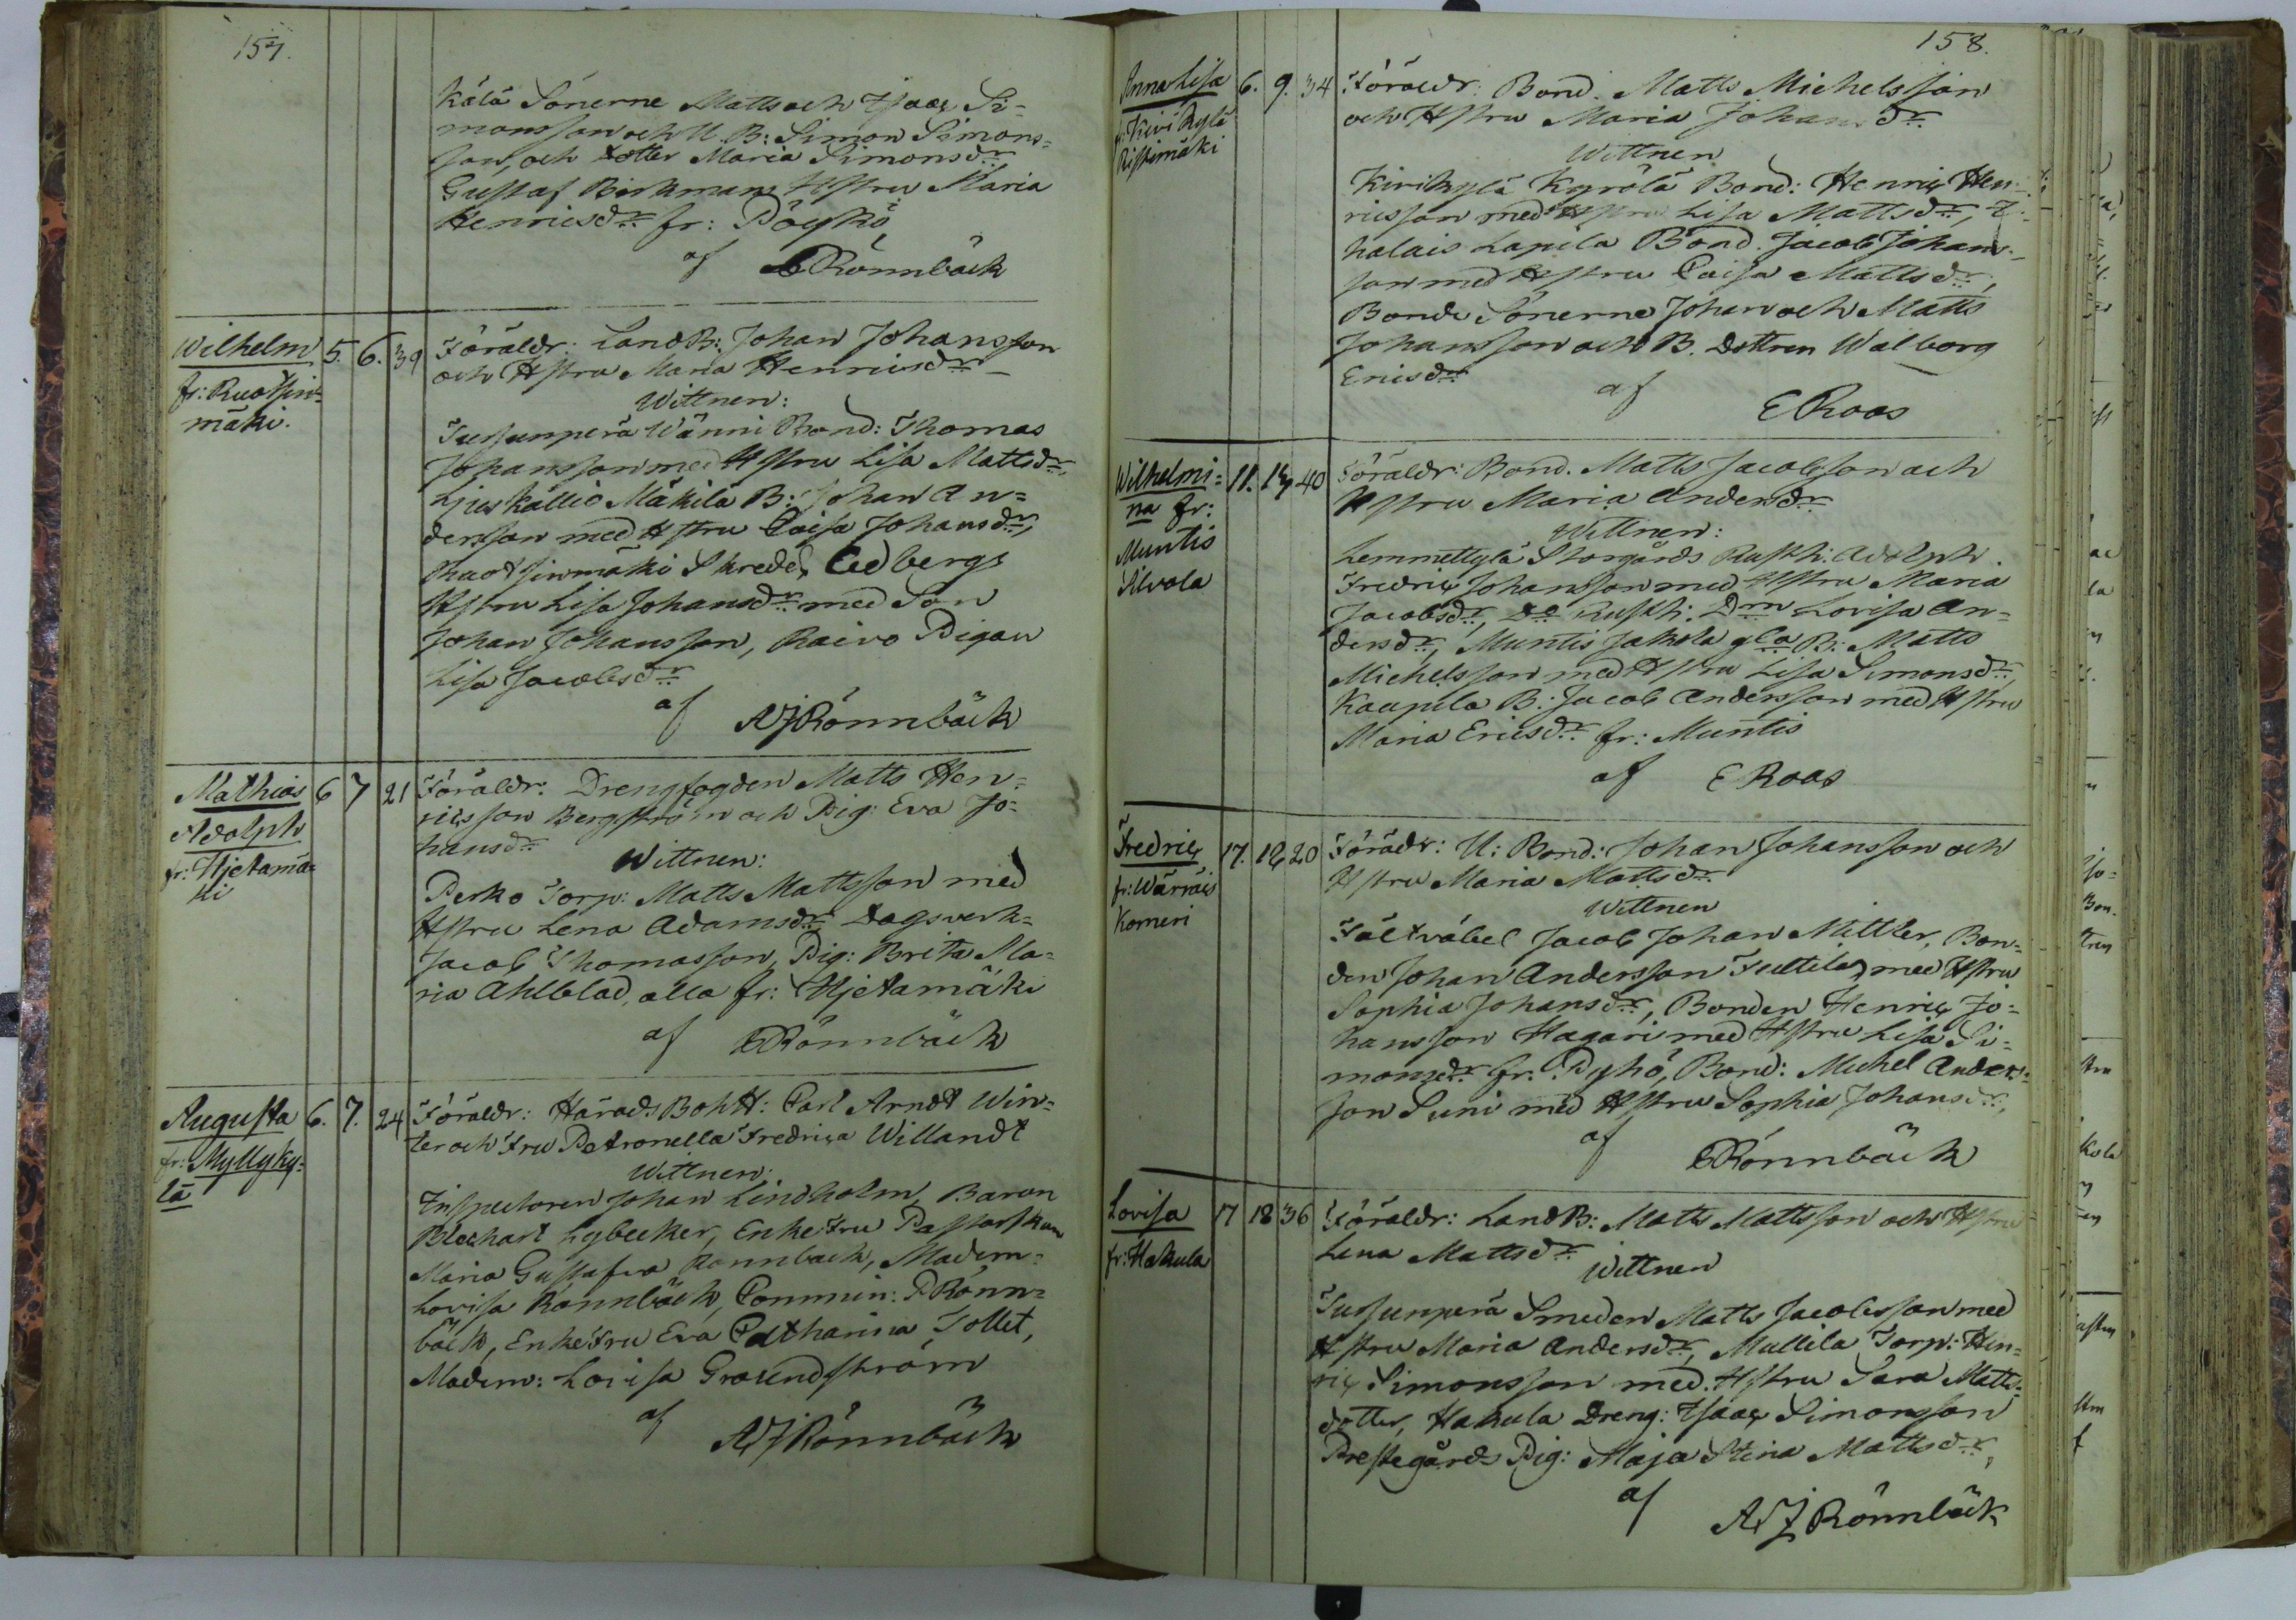 157.
kälä Sönerne Matts och Isaac Si-
monsson och U. B: Simon Simons-
son, och dotter Maria Simonsdr
Gustaf Birkmans Hstru Maria
Henricsdr fr: Pöytiö
af Rönnbäck
Wilhelm 5. 6. 39 Föräldr: LandB: Johan Johansson
fr: Ruotsin- och Hstru Maria Henricsdr
mäki. Wittnen:
Wänni Bond: Thomas
Johansson med Hstru Lisa Mattsdr
Mäkilä B: Johan An-
dersson med Hstru Caisa Johansdr,
Ruotsinmäki Skredd. Cedbergs
Hstru Lisa Johansdr med Son
Johan Johansson, Raivo Pigan
Lisa Jacobsdr
af AJRönnbäck
Mathias 6 7 21 Föräldr: Drengfogden Matts Hen-
Adolph ricsson Bergström och Pig: Eva Jo-
fr: Hjetamä- hansdr
ki Wittnen:
Perko Torp: Matts Mattsson med
Hstru Lena Adamsdr Dagsverk-
Jacob Thomasson, Pig: Brita Ma-
ria Ahlblad, alla fr: Hjetamäki
af Rönnbäck
Augusta 6. 7. 24 Föräldr: Härads BohH: Carl Arndt Win-
fr: Myllyky- ter och Fru Petronella Fredrica Willandt
lä Wittnen:
Inspectoren Johan Lindholm, Baron
Blechart Lybecker, EnkeFru Pastorskan
Maria Gustafva Rönnbäck, Madem-
Lovisa Rönnbäck, Commin: P Rönn-
bäck, EnkeFru Eva Catharina Tollet,
Madem: Lovisa Graundström
af AJRönnbäck
158.
Anna Lisa 6. 9. 34 Föräldr: Bond. Matts Michelsson
fr: Kivi Kylä och Hstru Maria Johansdr
Ristimäki Wittnen
Kivikylä Kyrölä Bond: Henric Hen-
ricsson med Hstru Lisa Mattsdr, I-
halais Lapila Bond. Jacob Johans-
son med Hstru Caisa Mattsdr,
Bonde Sönerne Johan och Matts
Johansson och B. Dottren Walborg
Ericsdr
af E Roos
Wilhelmi- 11. 14 40 Föräldr: Bond. Matts Jacobsson och
na fr: Hstru Maria Andersdr
Muntis Wittnen:
Alvola Lemmettylä Storgårds Rusth: Adolph
Fredric Johansson med Hstru Maria
Jacobsdr, Do Rusth: Drn Lovisa An-
dersdr, Muntis Jakola gla B: Matts
Michelsson med Hstru Lisa Simonsdr,
Kaapila B: Jacob Andersson med Hstru
Maria Ericsdr fr: Muntis
af E Roos
Fredric 17. 18 20 Föräldr: U: Bond: Johan Johansson och
fr: Wärräis Hstru Maria Mattsdr
Korneri Wittnen
Fältväbel Jacob Johan Mittler, Bon-
den Johan Andersson Tuttila, med Hstru
Sophia Johansdr, Bonden Henric Jo-
hansson Hagari med Hstru Lisa Si-
monsdr fr: Pyhö, Bond: Michel Anders-
son Suni med Hstru Sophia Johansdr,
af Rönnbäck
Lovisa 17 18 36 Föräldr: LandB: Matts Mattsson och Hstru
fr: Hakula Lena Mattsdr
Wittnen
Smeden Matts Jacobsson med
Hstru Maria Andersdr, Mullila Torp: Hen-
ric Simonsson med Hstru Sara Matts-
dotter, Hakula Dreng: Isaac Simonsson
Prestegårds Pig: Maja Stina Mattsdr,
af AJ Rönnbäck